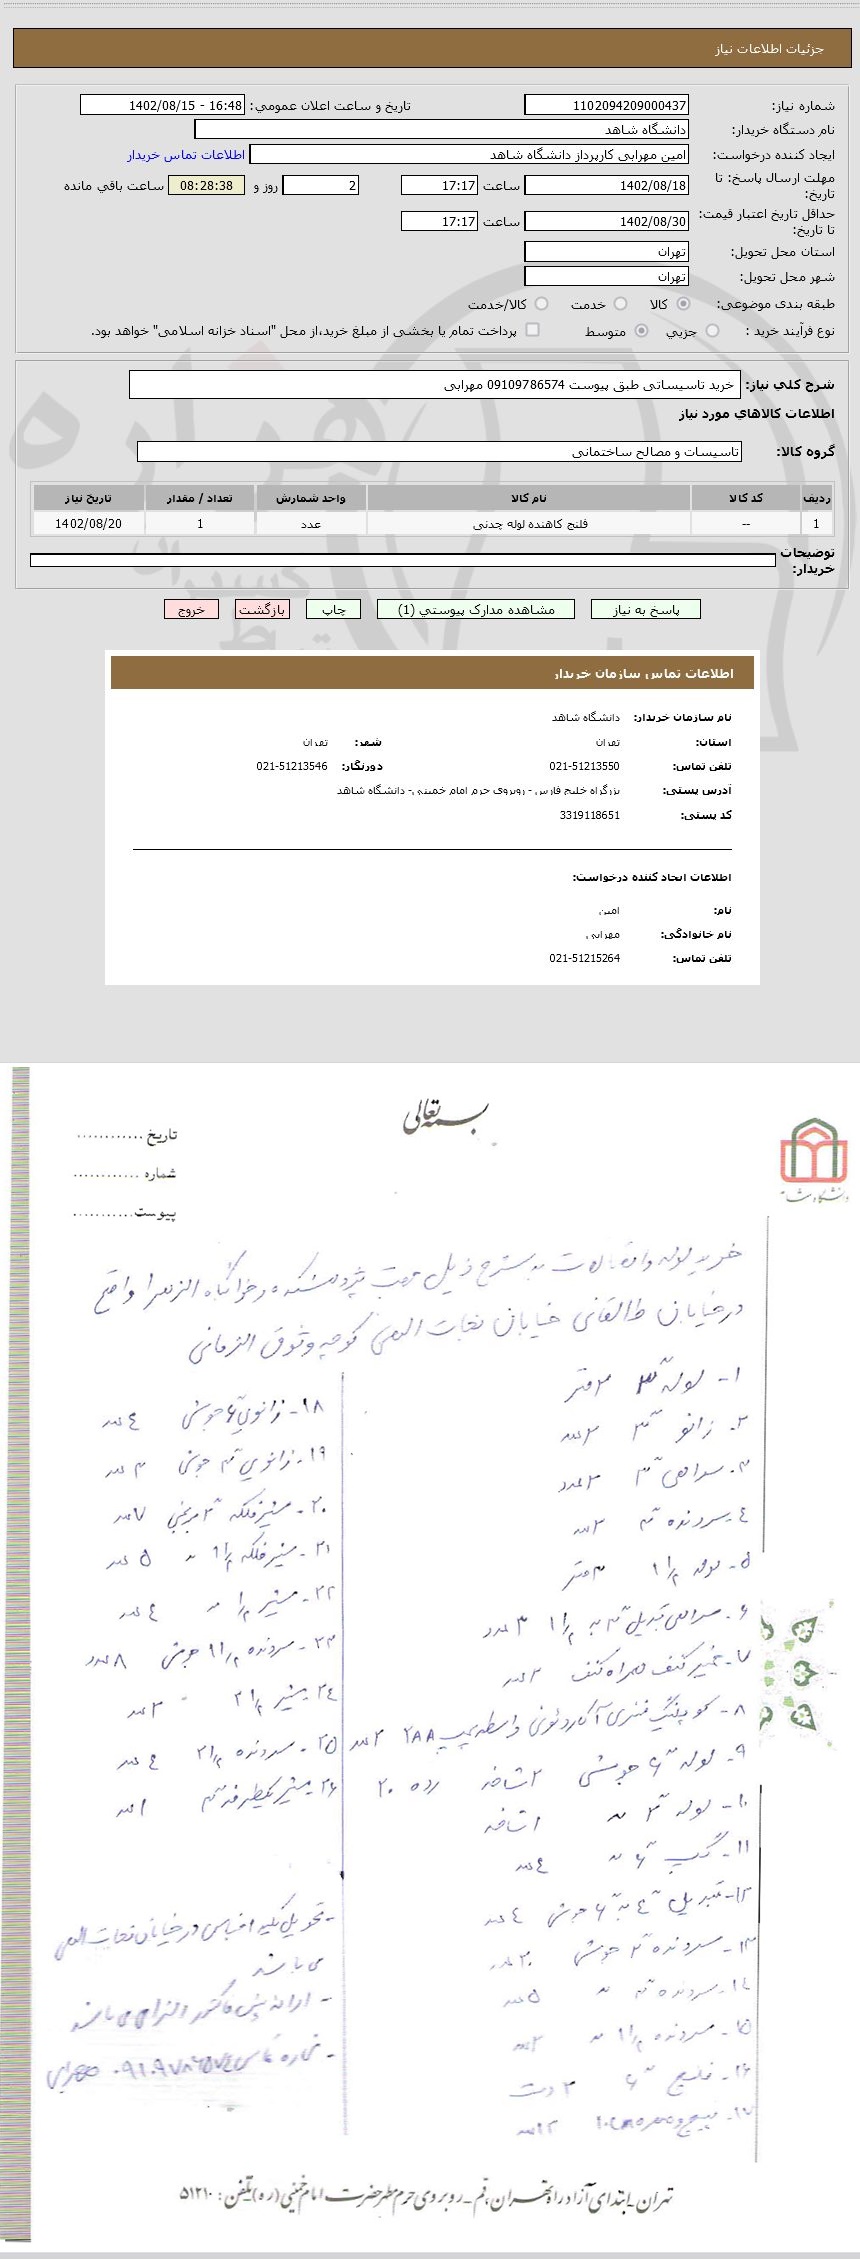 جزئیات اطلاعات نیاز
شماره نیاز: 1102094209000437 تاریخ و ساعت اعلان عمومي: 1402/08/15 - 16:48
نام دستگاه خریدار: دانشگاه شاهد
ایجاد کننده درخواست: امین مهرابی کارپرداز دانشگاه شاهد اطلاعات تماس خریدار
مهلت ارسال پاسخ: تا تاریخ: 1402/08/18 ساعت 17:17 2 روز و 08:28:38 ساعت باقي مانده
حداقل تاریخ اعتبار قیمت: تا تاریخ: 1402/08/30 ساعت 17:17
استان محل تحویل: تهران
شهر محل تحویل: تهران
طبقه بندی موضوعی: کالا خدمت کالا/خدمت
نوع فرآیند خرید : جزیي متوسط پرداخت تمام یا بخشی از مبلغ خرید،از محل "اسناد خزانه اسلامی" خواهد بود.
شرح کلي نیاز: خرید تاسیساتی طبق پیوست 09109786574 مهرابی
اطلاعات کالاهاي مورد نیاز
گروه کالا: تاسیسات و مصالح ساختمانی
ردیف کد کالا نام کالا واحد شمارش تعداد / مقدار تاریخ نیاز
1 -- فلنج کاهنده لوله چدنی عدد 1 1402/08/20
توضیحات خریدار:
پاسخ به نیاز مشاهده مدارک پیوستي (1) چاپ بازگشت خروج
اطلاعات تماس سازمان خریدار
نام سازمان خریدار: دانشگاه شاهد
استان: تهران شهر: تهران
تلفن تماس: 021-51213550 دورنگار: 021-51213546
آدرس پستی: بزرگراه خلیج فارس - روبروی حرم امام خمینی- دانشگاه شاهد
کد پستی: 3319118651
اطلاعات ایجاد کننده درخواست:
نام: امین
نام خانوادگی: مهرابی
تلفن تماس: 021-51215264
بسمه تعالی
تاریخ ............
شماره ............
پیوست...........
دانشگاه شاهد
خرید لوله و اتصالات به شرح ذیل جهت پژوهشکده و خوابگاه الزهرا واقع
در خیابان طالقانی خیابان نجات الهی کوچه وثوق الزمانی
۱- لوله "۳ ۲ متر
۲- زانو "۳ ۲ عدد
۳- سراهی "۳ ۲ عدد
٤- سردنده "۳ ۲ عدد
۵- لوله ۱ ۱/۲ ۳ متر
۶- سراهی تبدیل "۳ به ۱ ۱/۲ ۳ عدد
۷- خمیر کنف همراه کنف ۲ عدد
۸- کوپلینگ فنری آکاردئونی واسطه پمپ ۲ عدد
۹- لوله "۶ جوشی ۲ شاخه رده ۲۰
۱۰- لوله "۳ " ۱ شاخه
۱۱- کپ "۶ " ٤ عدد
۱۲- تبدیل "٤ به "۶ جوشی ٤ عدد
۱۳- سردنده "۲ جوشی ۲۰ عدد
۱٤- سردنده "۳ " ۵ عدد
۱۵- سردنده ۱ ۱/۲ " ۲ عدد
۱۶- فلنج "۶ ۲ دست
۱۷- پیچ و مهره ۱۲ عدد
۱۸- زانوی "۶ جوشی ٤ عدد
۱۹- زانویی "۳ جوشی ۳ عدد
۲۰- شیرفلکه "۲ برنجی ۷ عدد
۲۱- شیرفلکه ۱ ۱/۲ " ۵ عدد
۲۲- شیر ۱/۲ " ٤ عدد
۲۳- سردنده ۱ ۱/۲ جوشی ۸ عدد
۲٤- شیر ۲ ۱/۲ " ۲ عدد
۲۵- سردنده ۲ ۱/۲ ٤ عدد
۲۶- شیر یکطرفه "۳ ۱ عدد
- تحویل کلیه اجناس در خیابان نجات الهی
می باشد
- ارائه پیش فاکتور الزامی می باشد
- شماره تماس ۰۹۱۰۹۷۸۶۵۷٤ مهرابی
تهران - ابتدای آزاد راه تهران، قم - روبروی حرم مطهر حضرت امام خمینی (ره) تلفن : ۵۱۲۱۰